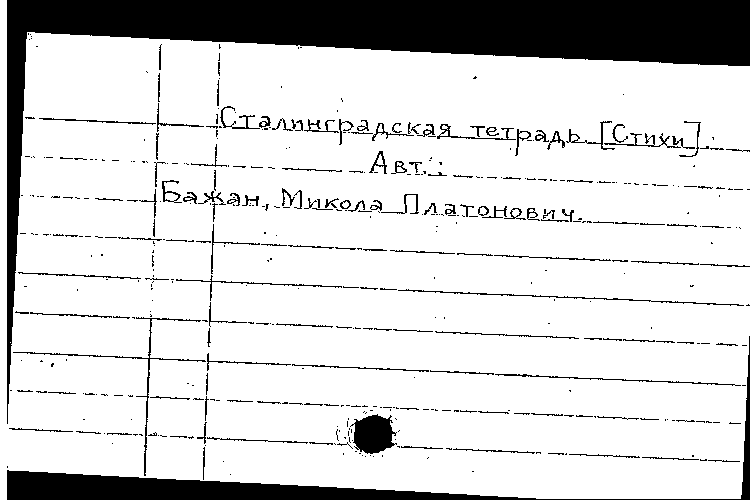 Сталинградская тетрадь. [Стихи].
Авт.:
Бажан, Микола Платонович.